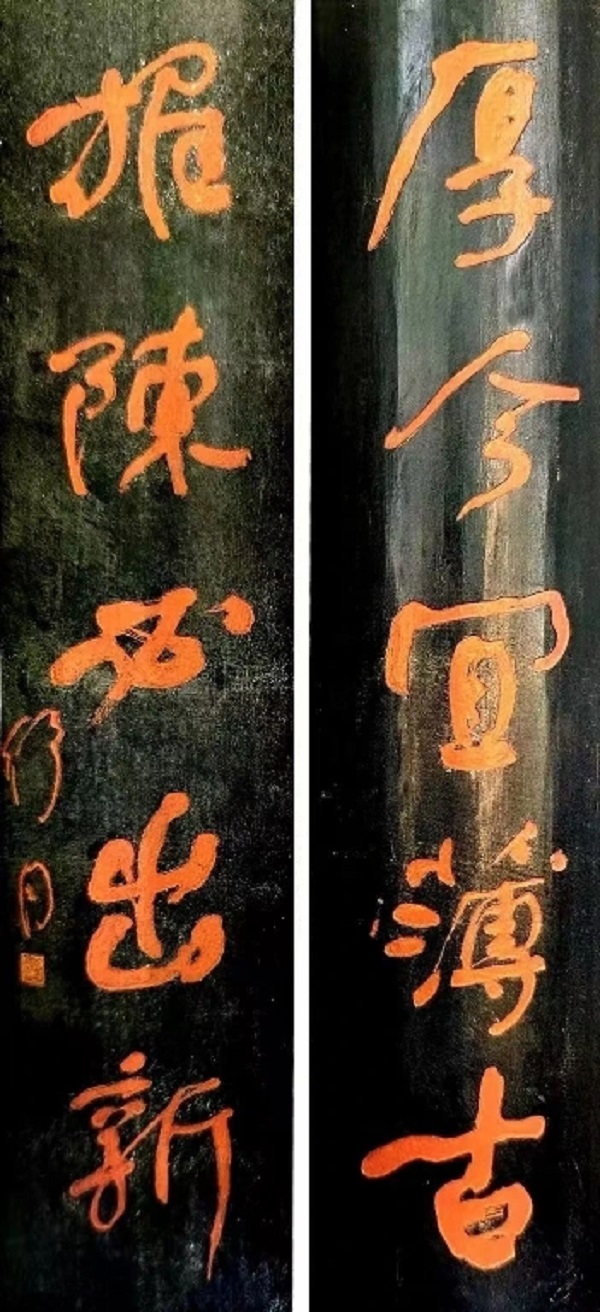 厚今宜薄古
推陳必出新
舒同